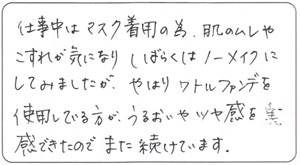 仕事中はマスク着用の為、肌のムレや
こすれが気になり しばらくは ノーメイクに
してみましたが、やはりワトルファンデを
使用している方が、うるおいやツヤ感を
感できたので また続けています。